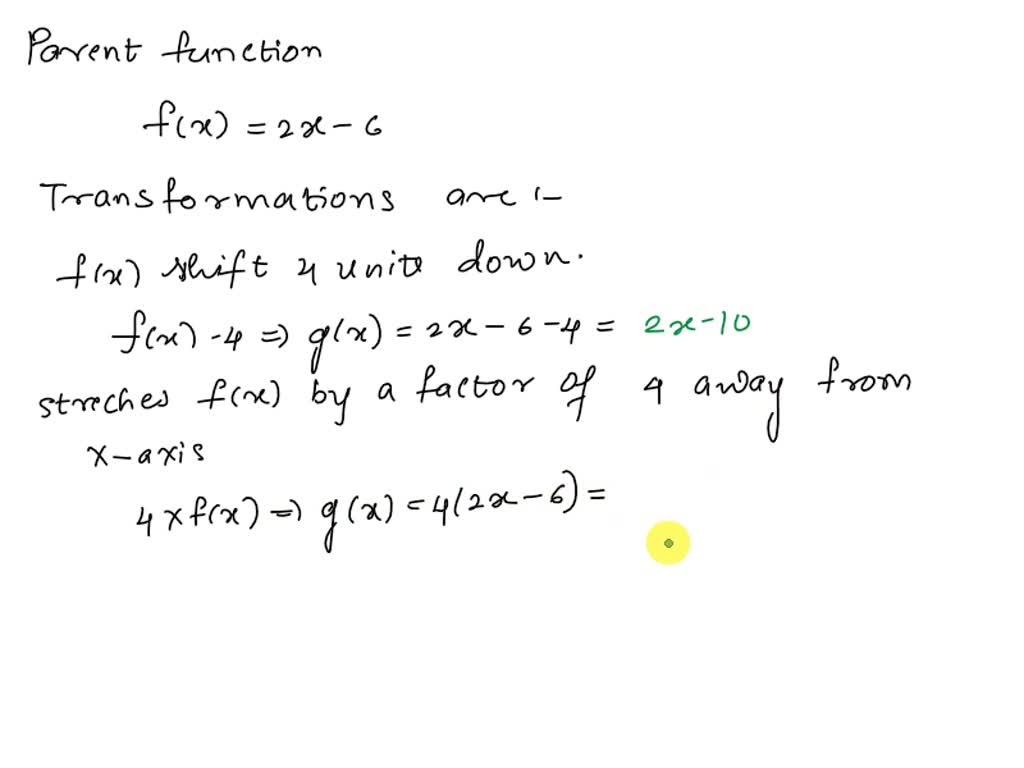 Parent function
f(x) = 2x - 6
Transformations are :-
f(x) shift 4 units down.
f(x) - 4 => g(x) = 2x - 6 - 4 = 2x - 10
streches f(x) by a factor of 4 away from
x-axis
4 x f(x) => g(x) = 4(2x - 6) =